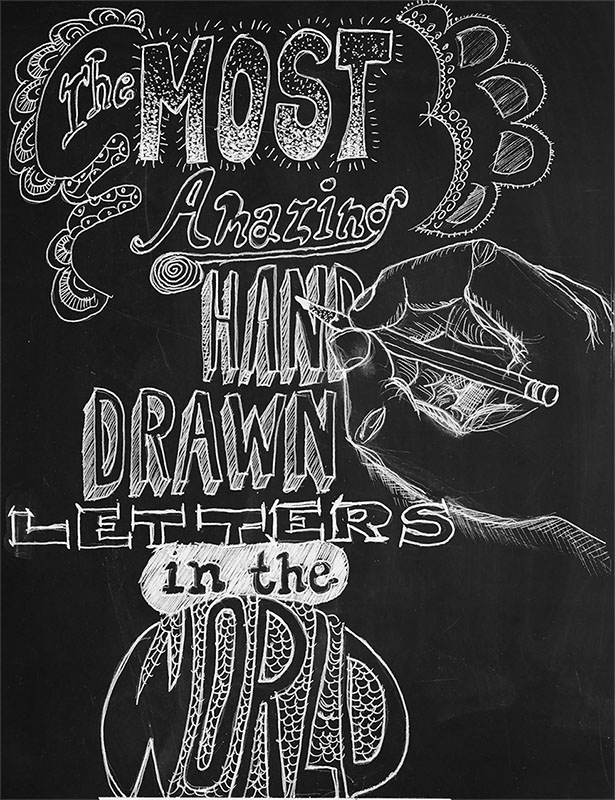 The MOST
Amazing
HAND
DRAWN
LETTERS
in the
WORLD